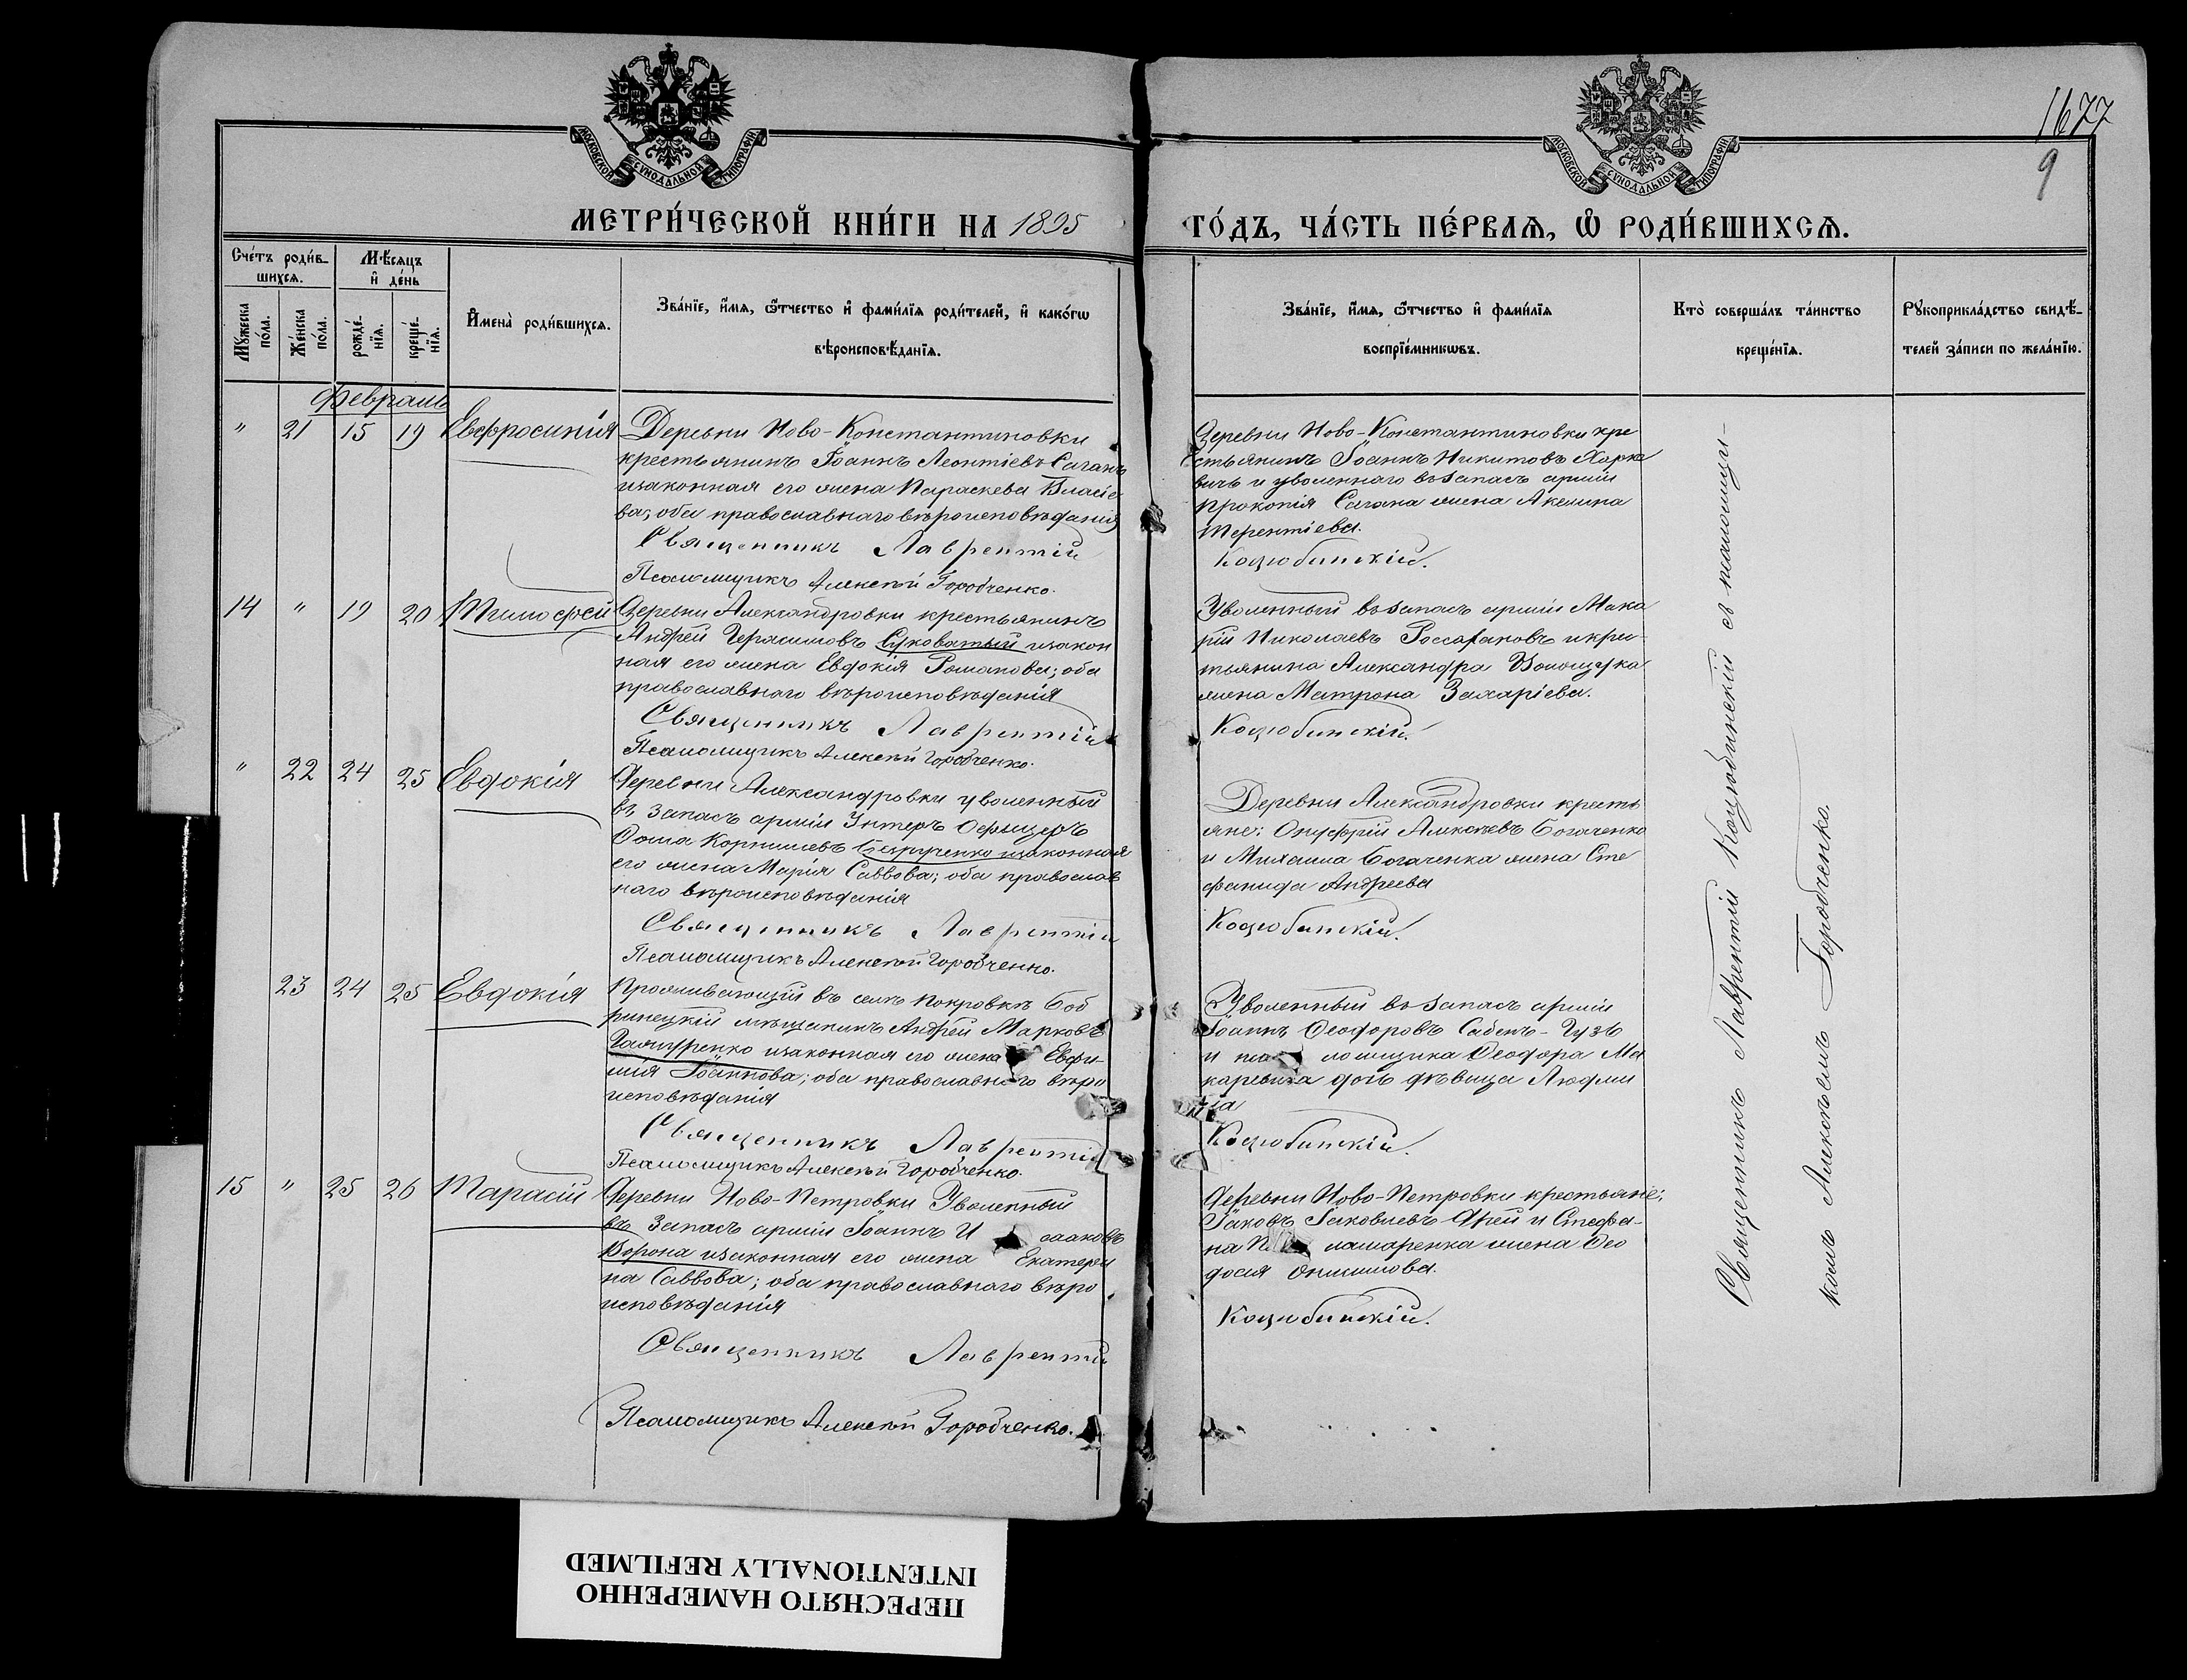 1677
9
МОСКОВСКОЙ СУНОДАЛЬНОЙ ТИПОГРАФІИ
МОСКОВСКОЙ СУНОДАЛЬНОЙ ТИПОГРАФІИ
МЕТРИ́ЧЕСКОЙ КНИ́ГИ НА 1895
ГО́ДЪ, ЧА́СТЬ ПЕ́РВАѦ, Ѡ РОДИ́ВШИХСѦ.
Сче́тъ роди́в-
шихсѧ.
Мѣ́сѧцъ
и҆ де́нь
Мꙋ́жеска
по́ла.
Же́нска
по́ла.
рожде́-
нїѧ.
креще́-
нїѧ.
И҆мена̀ роди́вшихсѧ.
Зва́нїе, и҆́мѧ, ѿтчество и҆ фами́лїѧ роди́телей, и҆ како́гѡ
вѣроисповѣ́данїѧ.
Зва́нїе, и҆́мѧ, ѿтчество и҆ фами́лїѧ
воспрїе́мникѡвъ.
Кто̀ соверша́лъ та́инство
креще́нїѧ.
Рꙋкоприкла́дство свидѣ́-
телей за́писи по жела́нїю.
Февраль
" 21 15 19 Евфросинія
Деревни Ново-Константиновки
крестьянинъ Іоаннъ Леонтіевъ Саганъ
изаконная его жена Параскева Власіе
ва; оба православнаго вѣроисповѣданія
Священникъ Лаврентій
Псаломщикъ Алексѣй Горобченко.
Деревни Ново-Константиновки кре
стьянинъ Іоаннъ Никитовъ Харке
вичъ и уволеннаго въ запасъ арміи
Прокопія Сагана жена Акелина
Терентіева.
Коцюбинскій.
14 " 19 20 Тимофей
Деревни Александровки крестьянинъ
Андрей Герасимовъ Суковатый изакон
ная его жена Евдокія Романова; оба
православнаго вѣроисповѣданія
Священникъ Лаврентій
Псаломщикъ Алексѣй Горобченко.
Уволенный въ запасъ арміи Мака
рій Николаевъ икрес
тьянина Александра Волощука
жена Матрона Захаріева.
Коцюбинскій.
" 22 24 25 Евдокія
Деревни Александровки уволенный
въ запасъ арміи Унтеръ Офицеръ
Ѳома Корниліевъ Безрученко изаконная
его жена Марія Саввова; оба православ
наго вѣроисповѣданія
Священникъ Лаврентій
Псаломщикъ Алексѣй Горобченко.
Деревни Александровки кресть
яне: Онуфрій Алексѣевъ Богаченко
и Михаила Богаченка жена Сте
фанида Андреева
Коцюбинскій.
23 24 25 Евдокія
Проживающій въ селѣ Покровкѣ Боб
ринецкій мѣщанинъ Андрей Марковъ
изаконная его жена Евфи-
мія Іоаннова; оба православнаго вѣро
исповѣданія
Священникъ Лаврентій
Псаломщикъ Алексѣй Горобченко.
Уволенный въ запасъ арміи
Іоаннъ Ѳеодоровъ
и ломщика Ѳеодора Ма
каревича дочь дѣвица Людми
ла
Коцюбинскій.
15 " 25 26 Тарасій
Деревни Ново-Петровки Уволенный
въ Запасъ арміи Іоаннъ И сааковъ
Ворона изаконная его жена Екатери
на Саввова; оба православнаго вѣро
исповѣданія
Священникъ Лаврентій
Псаломщикъ Алексѣй Горобченко.
Деревни Ново-Петровки крестьяне:
Іаковъ Іаковлевъ и Стефа-
на ламаренка жена Ѳео
досія Онисимова.
Коцюбинскій.
Священникъ Лаврентій Коцюбинскій съ псаломщи-
комъ Алексѣемъ Горобченко.
ПЕРЕСНЯТО НАМЕРЕННО
INTENTIONALLY REFILMED